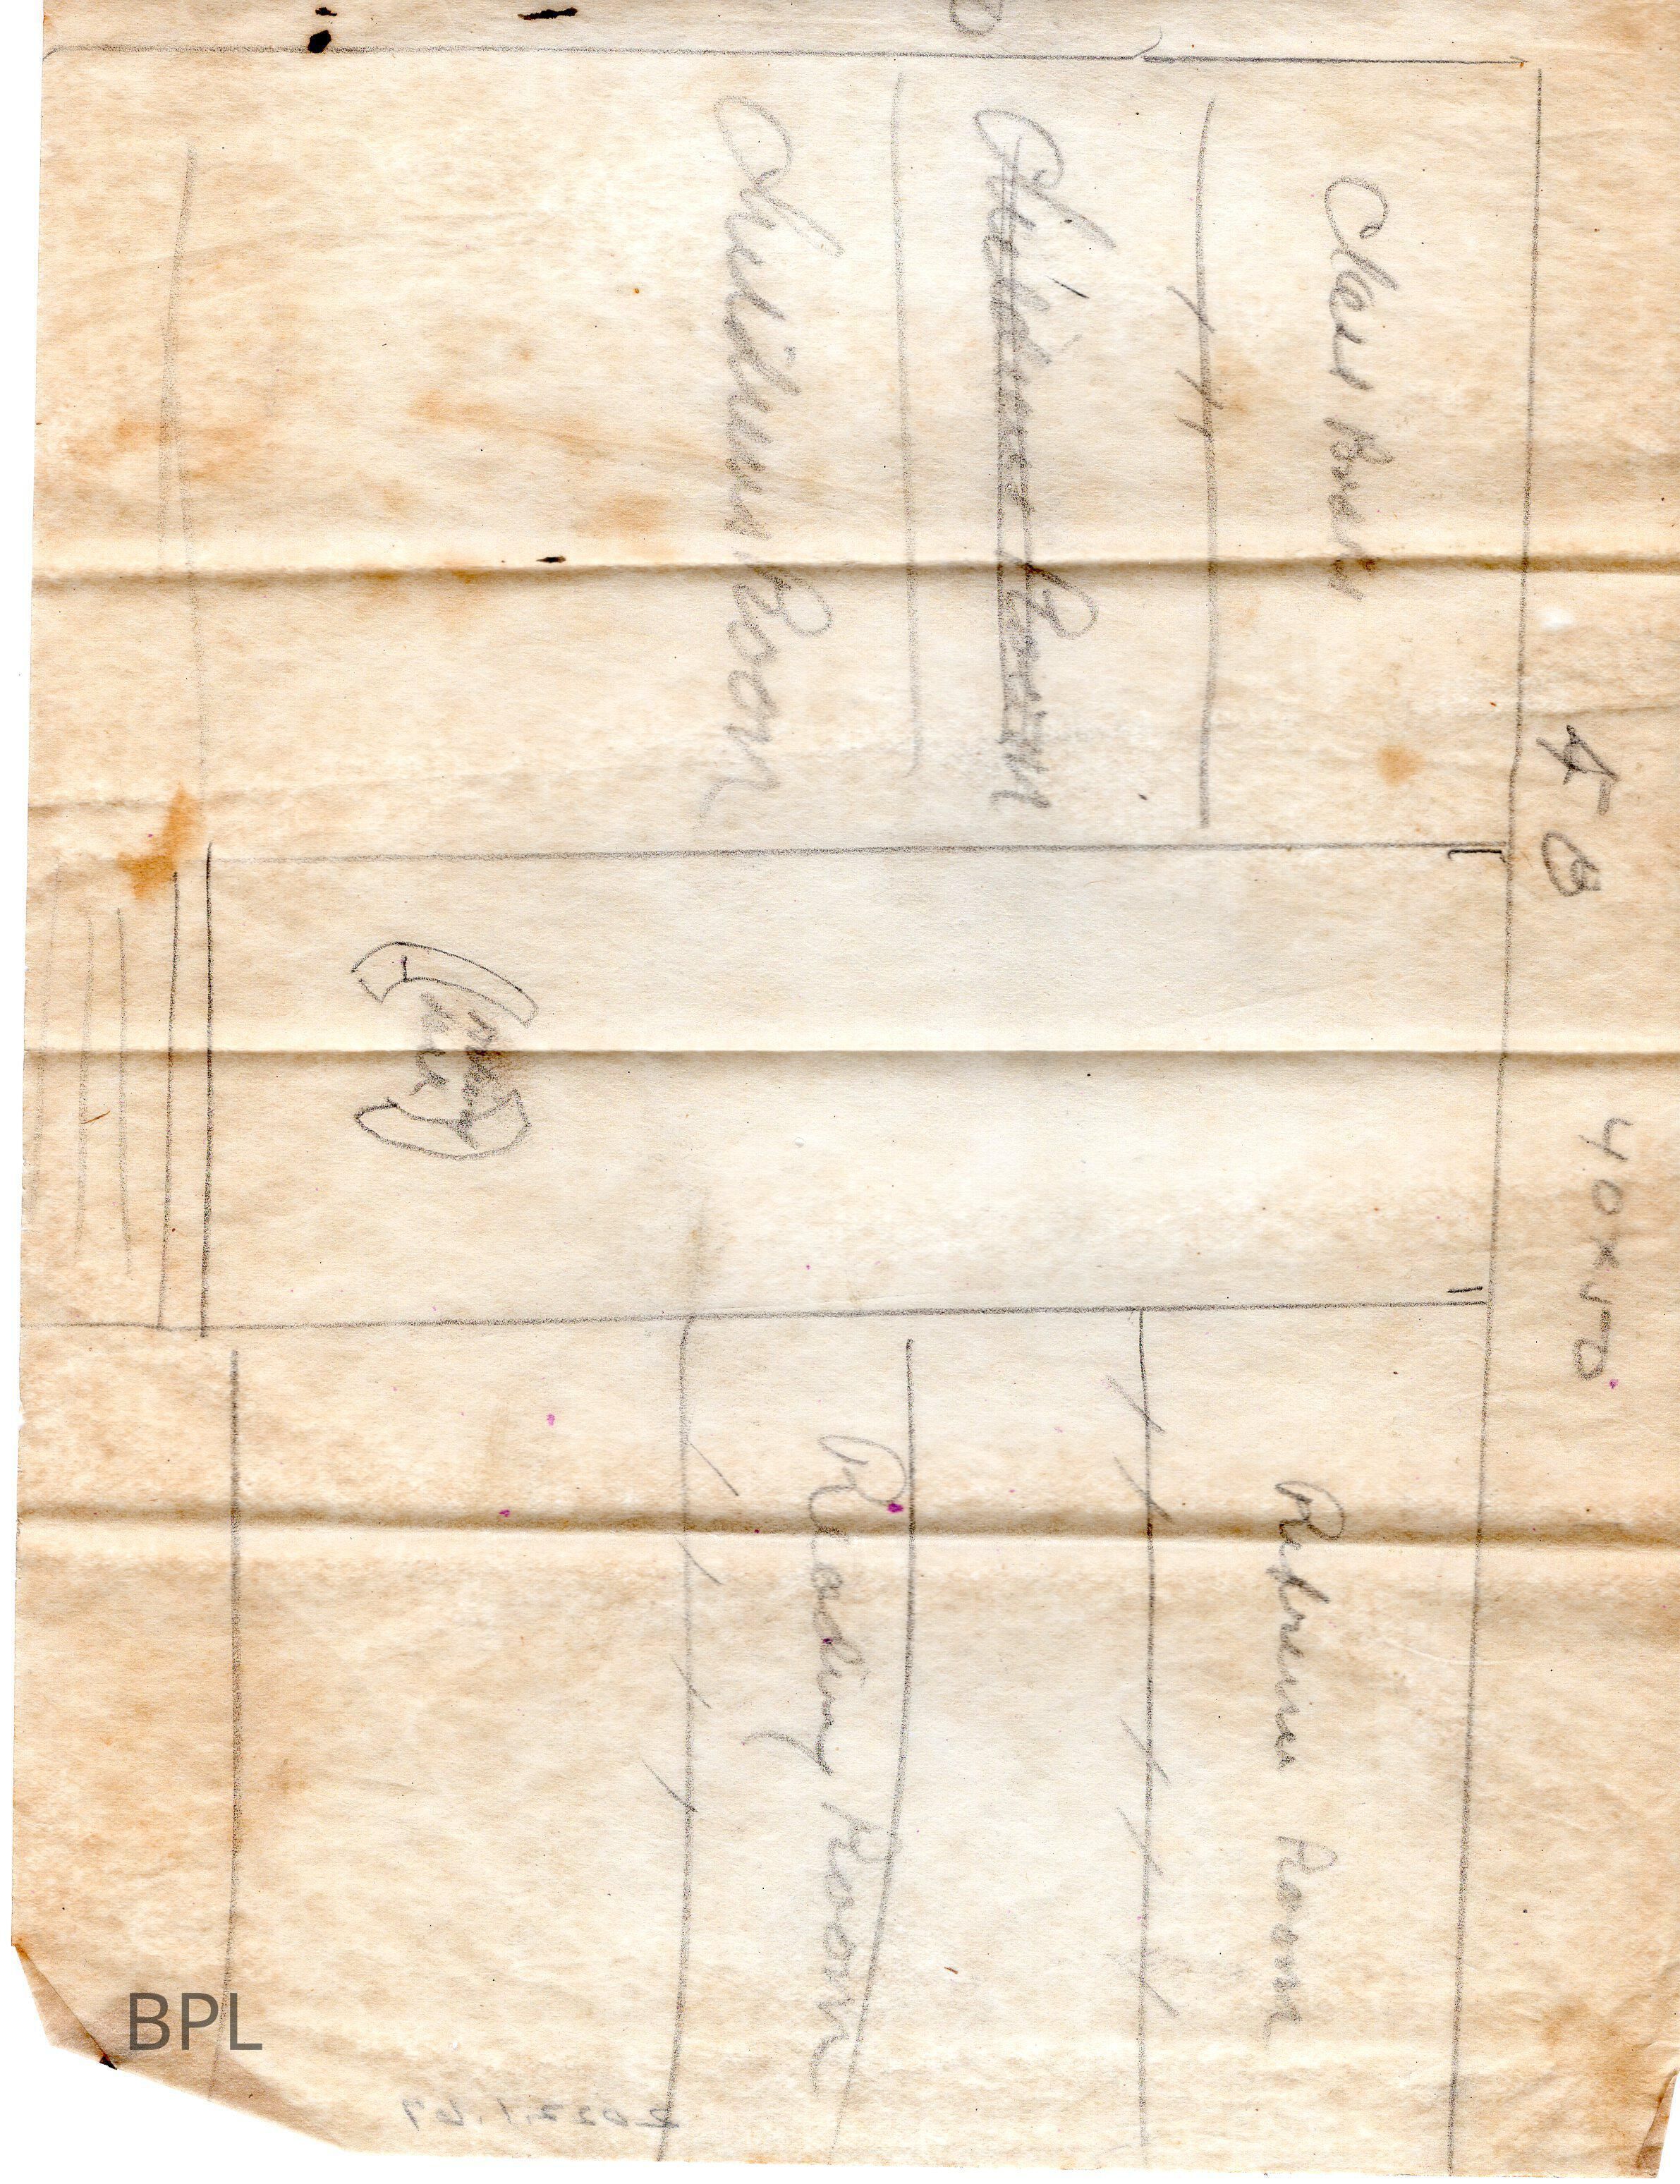 40
40 x 50
Class Room
Childrens Room
Childrens Room
Reference Room
Reading Room
BPL
2022.1.69